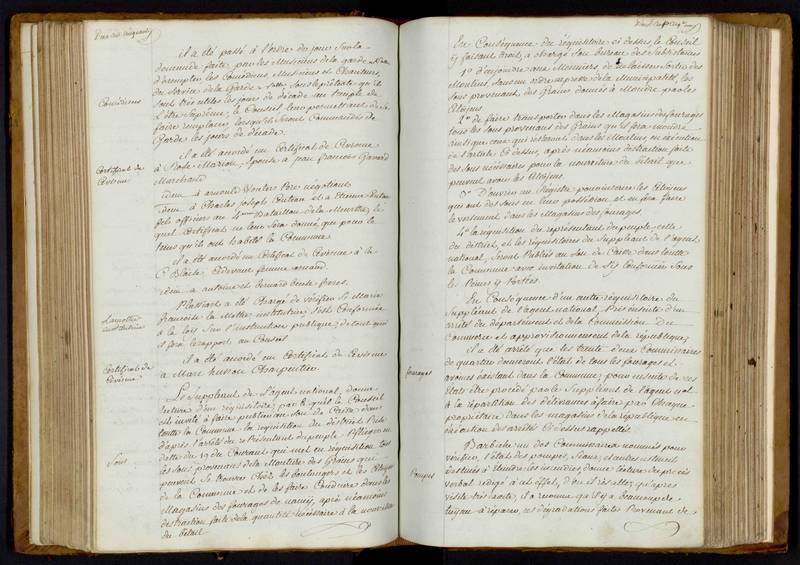 il a été passé à l'ordre du jour sur la
demande faite par les Musiciens de la garde N.ale
d'exempter les Comédiens, Musiciens et Chanteurs,
du Service de la Garde sous le prétexte qu'ils
sont très utiles les jours de décade au temple de
l'être Suprême; le Conseil leur permettant de se
faire remplacer lorsqu'ils seront Commandés de
Garde les jours de décade.
Comédiens
il a été accordé un Certificat de Civisme
à Rose Marion, Epouse à jean françois Gerard
Marchand
Certificat de
Civisme
idem à arnould Venters Père négotiant
idem à Charles Joseph et à Etienne
fels officiers au 4.eme Bataillon de la Meurthe, le
quel Certificat ne leur sera donné que pour le
tems qu'ils ont habité la Commune
il a été accordé un Certificat de Civisme à la
C. Blaise, Cidevant femme
idem a antoine et bernard freres.
a été Chargé de vérifier si Marie
françoise la Motte institutrice, s'est Conformée
à la loi sur l'instruction publique; de tout quoi
il fera le rapport au Conseil
Lamothe
institutrice
il a été accordé un Certificat de Civisme
à Marc husson Charpentier
Certificat de
Civisme
Le Suppléant de l'agent national, donne
lecture d'un réquisitoire, par le quel le Conseil
est invité à faire publier au son de Caisse dans
toutte la Commune la réquisition du district Prise
d'après l'arrêté du Représentant du peuple Pflieger en
datte du 19 du Courant qui met en réquisition tous
les sons provenans de la Mouture des Grains qui
peuvent se trouver chéz les boulengers et les Citoyens
de la Commune et de les faire Conduire dans les
Magasins des fourages de nancy, après néanmoins
distraction faite de la quantité nécessaire à la nourriture
du bétail
Sons
En Conséquence du réquisitoire ci dessus, le Conseil
y faisant droit, a chargé son bureau des Subsistances
1° d'enjoindre aux Meuniers, de ne laisser sortir des
Moulins, sans un ordre exprès de la Municipalité, les
sons provenant des Grains donnés à Moudre par les
Citoyens.
2° de faire transporter dans les Magasins des fourages
tous les sons provenans des Grains qu'il fera moudre,
ainsi que ceux qui resteront dans les Moulins, en exécution
de l'article Ci dessus, après néanmoins distraction faite
des sons nécessaires pour la nourriture du bétail que
peuvent avoir les Citoyens.
3° D'ouvrir un Registre pour inscrire les Citoyens
qui ont des sons en leur possession, et en fera faire
le versement dans les Magasins des fourages.
4° la réquisition du représentant du peuple, celle
du district, et les réquisitoires du Suppléant de l'agent
national, seront Publiés au son de Caisse dans toutte
la Commune avec invitation de s'y Conformer sous
les Peines y Portées.
En Conséquence d'un autre réquisitoire du
Suppléant de l'agent national, Pris ensuite d'un
arrêté du département et de la Commission du
Commerce et approvisionnement de la république;
il a été arrêté que les trente deux Commissaires
de quartier donneront l'état de tous les fourages et
avoines existant dans la Commune; pour ensuite de ces
Etats être procédé par le Suppléant de l'agent nat.
à la répartition des délivrances à faire par Chaque
propriétaire dans les magasins de la république en
exécution des arrêtés Ci dessus rappellés.
fourages
Barbiche un des Commissaires nommés pour
vérifier l'état des pompes, Seaux, et autres ustenciles
destinés à éteindre les incendies, donne lecture du procès
verbal redigé à cet effet, d'où il résulte qu'après
visite très exacte, il a reconnu qu'il y a beaucoup de
tuyaux à réparer, ces dégradations faites Provenant de
Pompes